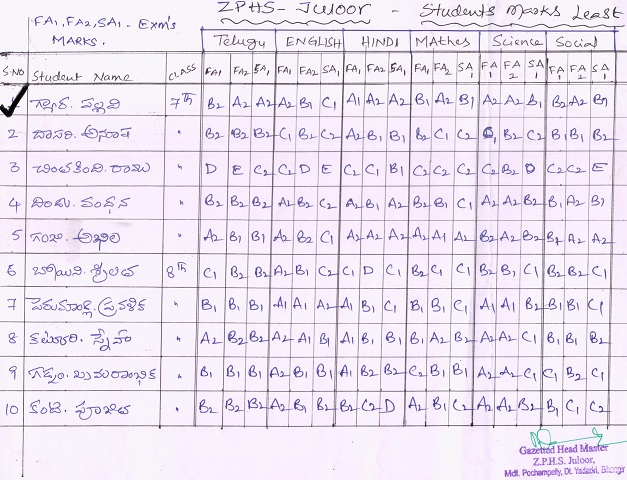 ZPHS- Juloor - Students Marks Least
FA1, FA2, SA1 - Exm's
MARKS.
Telugu ENGLISH HINDI Mathes Science Social
S.NO Student Name CLASS FA1 FA2 SA1 FA1 FA2 SA1 FA1 FA2 SA1 FA1 FA2 SA1 FA1 FA2 SA1 FA1 FA2 SA1
7th B2 A2 A2 A2 B1 C1 A1 A2 A2 B1 A2 B1 A2 A2 B1 B2 A2 B1
2 దాసరి. అనూష " B2 B2 B2 C1 B2 C2 A2 B1 B1 B2 C1 C2 C1 B2 C2 B1 B1 B2
3 చింతకింది. రాము " D E C2 C2 D E C2 C1 B1 C2 C2 C2 C2 B2 D C2 C2 E
4 దిండు. వందన " B2 B2 B2 A2 B2 C2 A2 B1 A2 B2 B1 C1 A2 A2 B2 B1 A2 B1
5 గంజి. అఖిల " A2 B1 B1 A2 B2 C1 A2 A2 A2 A2 A1 A2 B2 A2 B2 B1 A2 A2
6 8th C1 B2 B2 A2 B1 C2 C1 D C1 B2 C1 C1 B2 B1 C1 B2 B2 C1
7 పెరుమాండ్ల. ప్రవళిక " B1 B1 B1 A1 A1 A2 A2 B1 C1 B1 B1 C1 A1 A1 B2 B1 B1 C1
8 కట్కూరి. స్నేహ " A2 B2 B2 A2 A1 B1 A1 B1 B1 B1 A2 B2 A2 A2 C1 B1 B1 B2
9 గడ్డం. " B1 B1 B1 A2 B1 B1 A1 B2 B2 C2 B1 B1 A2 A2 C1 C1 B2 C1
10 కంటె. పూజిత " B2 B2 B2 A2 B1 B2 B2 C2 D A2 B1 C2 A2 A2 B2 B1 C1 C2
Gazetted Head Master
Z.P.H.S. Juloor,
Mdl. Pochampally, Dt. Yadadri, Bhongir